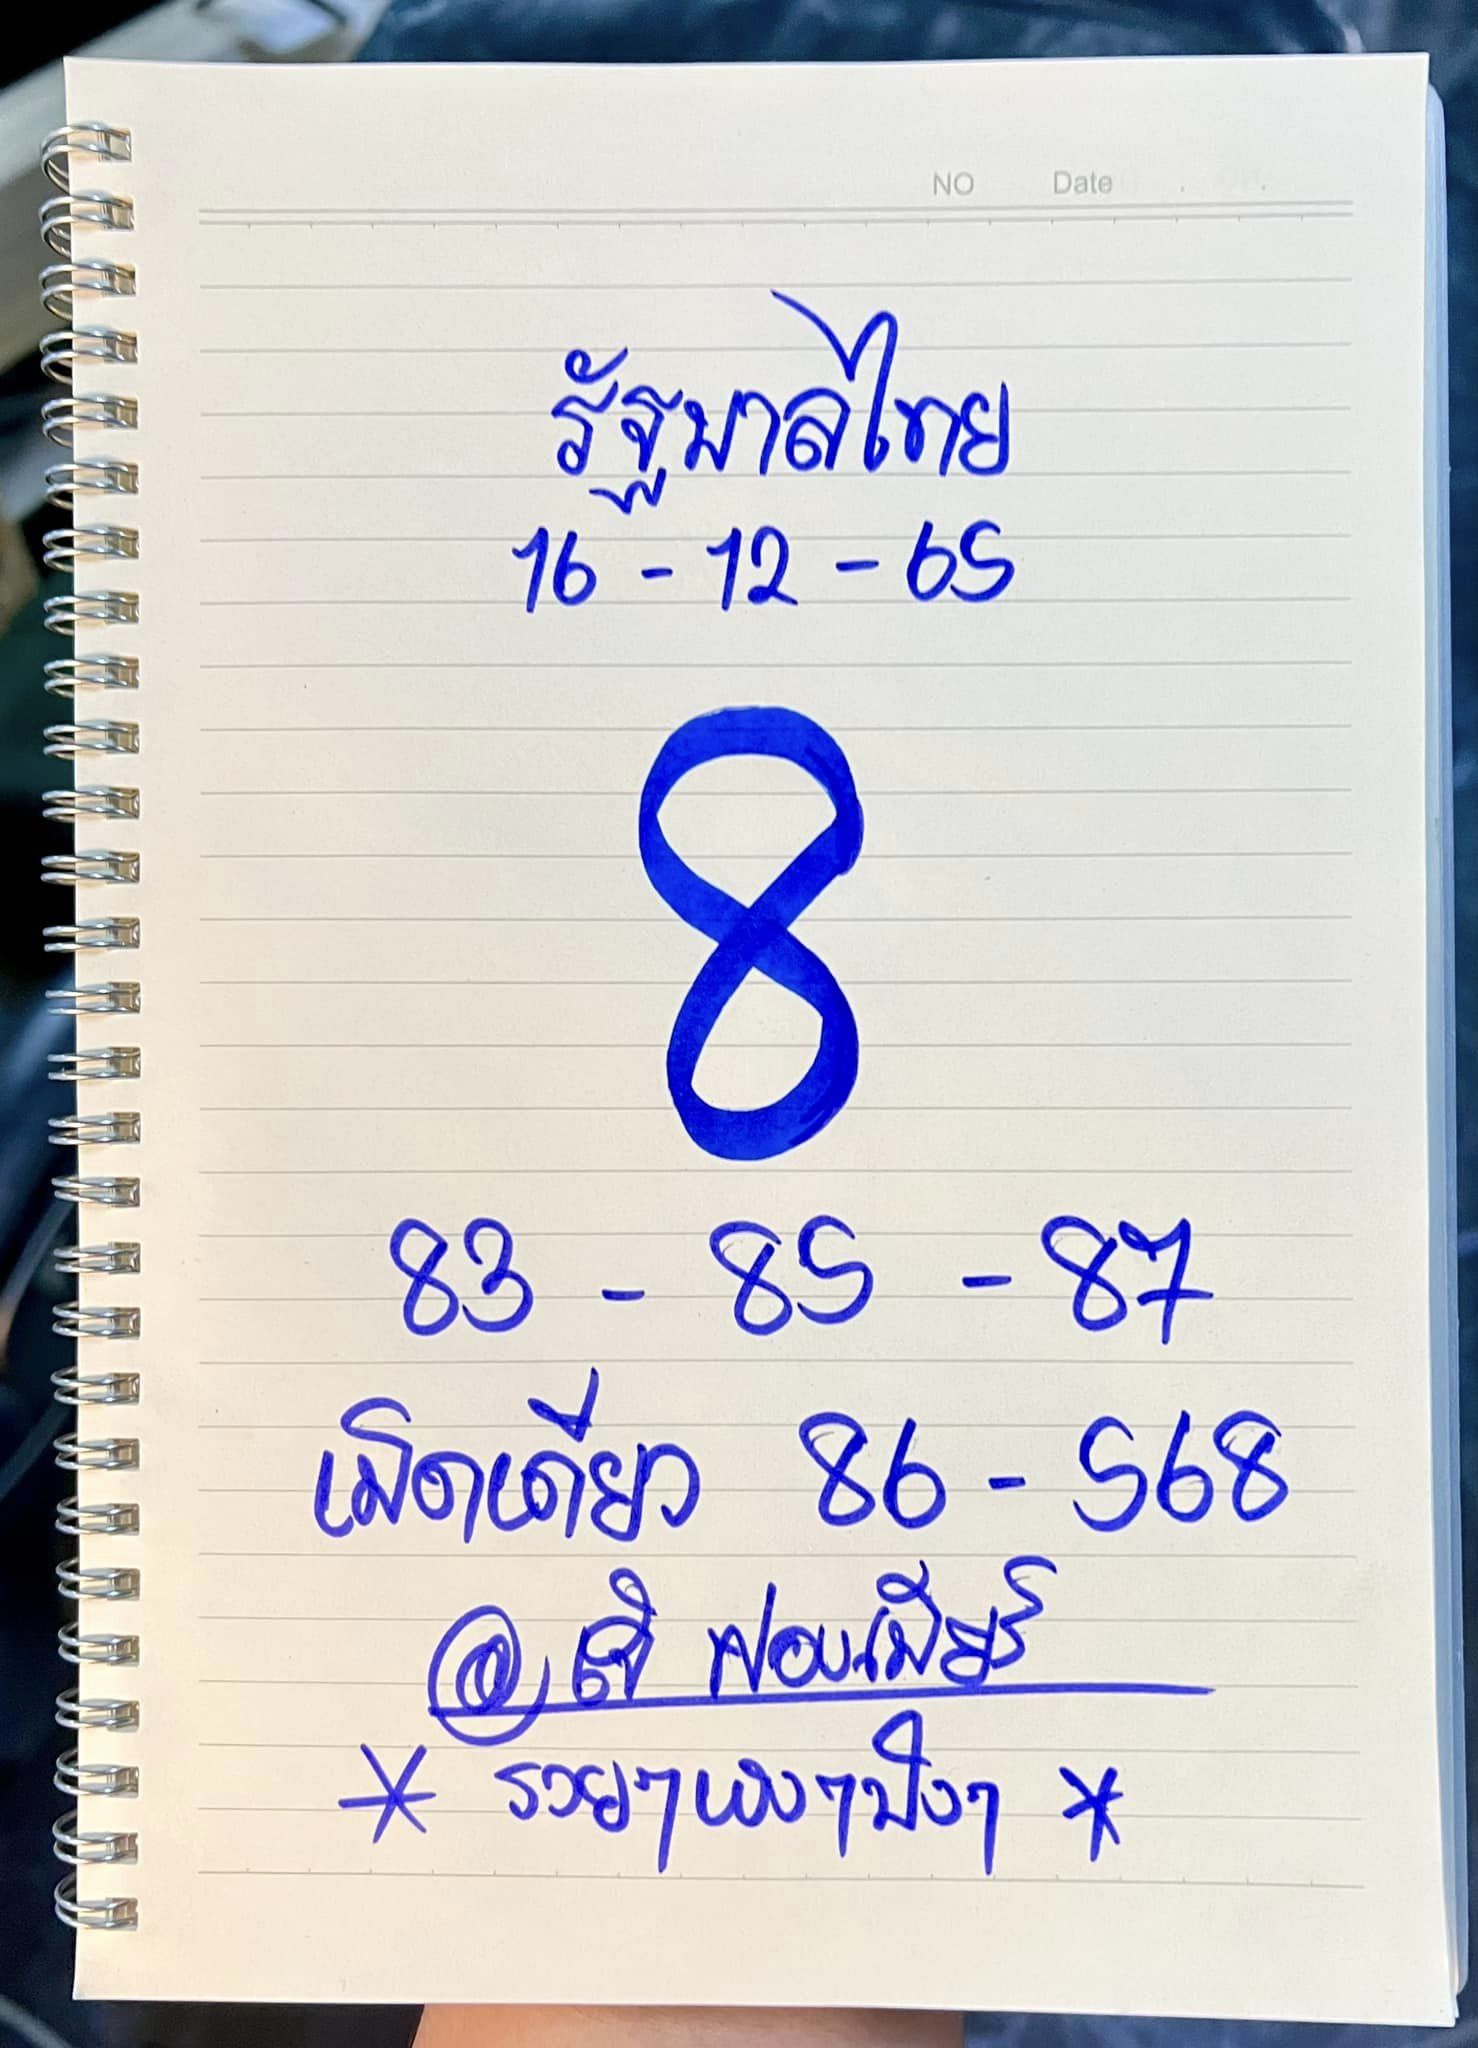 NO Date
รัฐบาลไทย
16 - 12 - 65
8
83 - 85 - 87
เม็ดเดียว 86 - 568
@ เจ๊ ฟองเบียร์
* รวยๆ เฮงๆ ปังๆ *